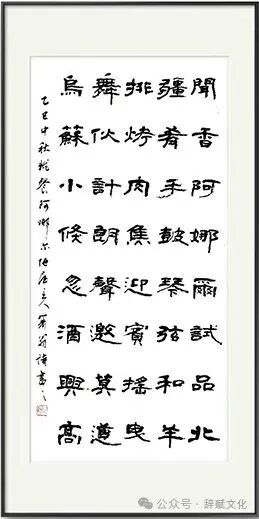 聞香阿娜爾試品北
疆肴手鼓琴弦和羊
排烤肉焦迎賓搖曳
舞伙計朗聲邀莫道
烏蘇小倏忽酒興高
乙巳中秋餐阿娜尔主人
公众号·辞赋文化